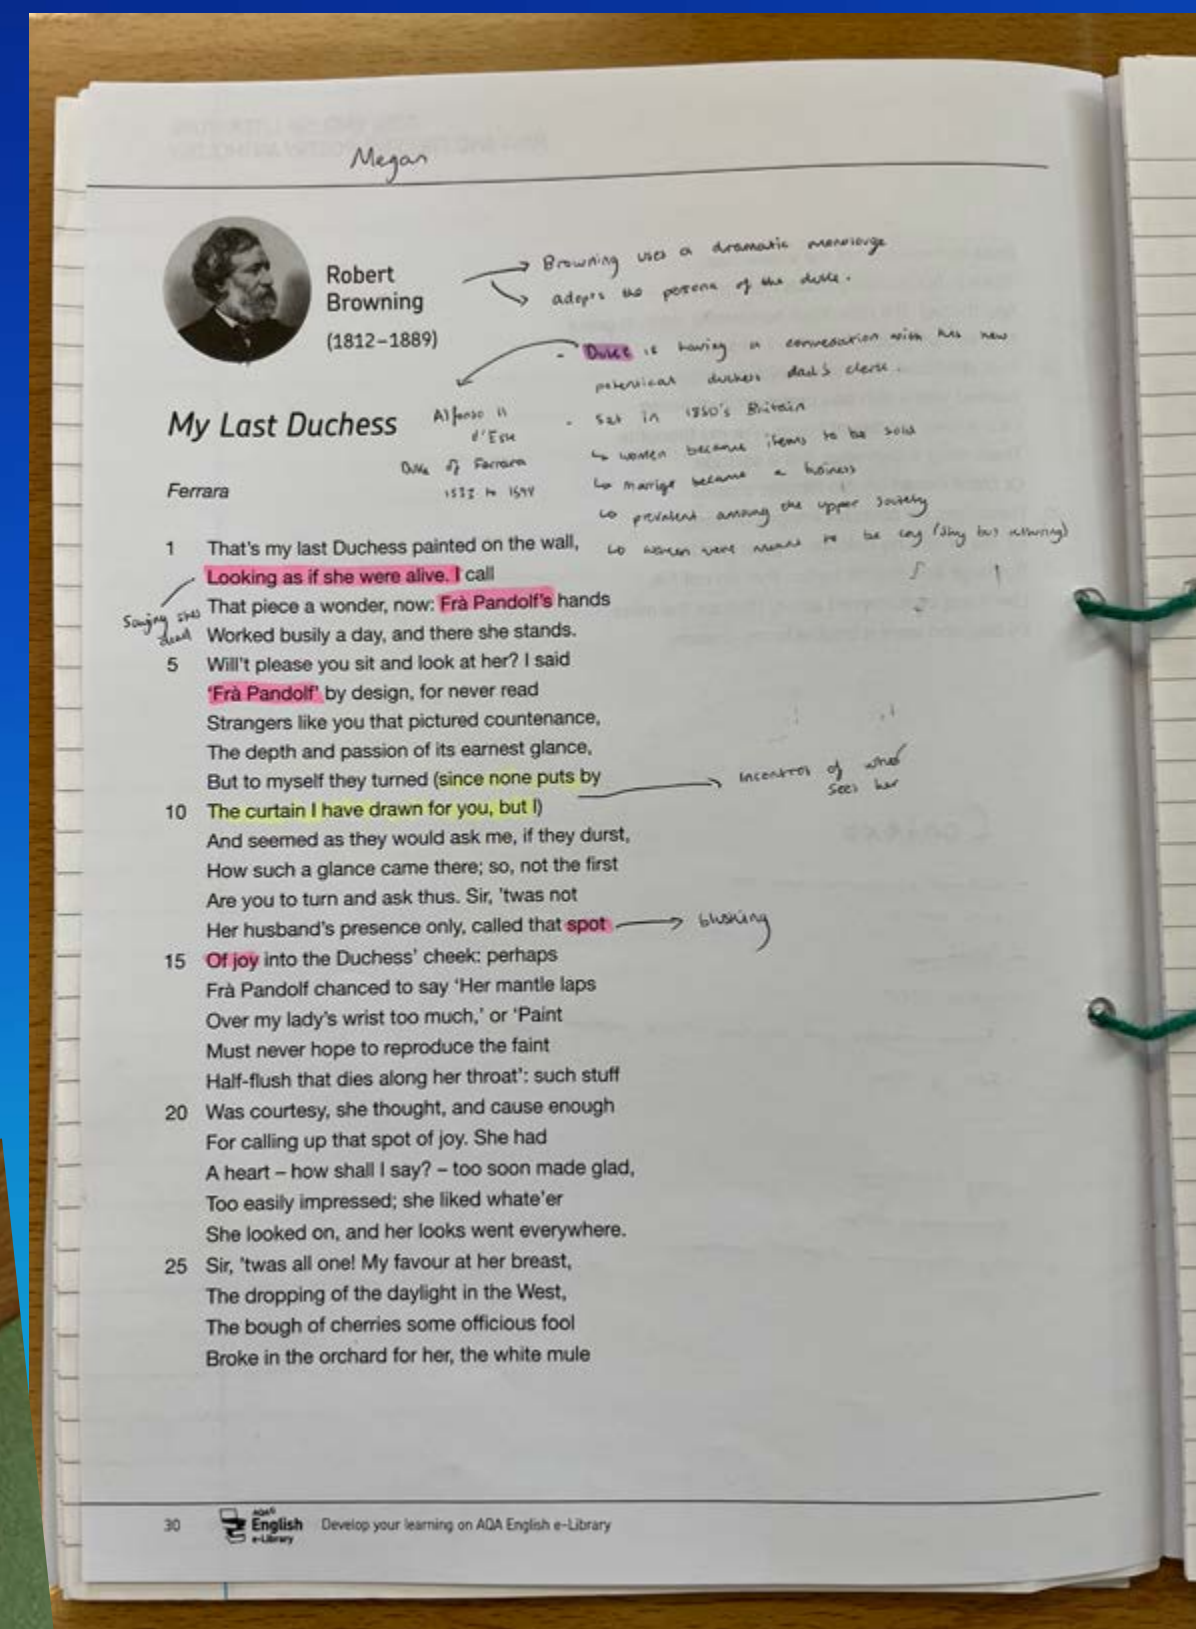 Megan
Robert
Browning
(1812–1889)
→ Browning uses a dramatic monolouge
→ adopts the persona of the duke.
- Duke is having a conversation with his new
potential duchess dad's clerk.
Alfonso II
d'Este
Duke of Ferrara
1533 to 1597
- Set in 1850's Britain
↳ women became items to be sold
↳ marrige became a buiness
↳ prevalent among the upper society
↳ women were meant to be coy (shy but alluring)
My Last Duchess
Ferrara
1 That's my last Duchess painted on the wall,
Looking as if she were alive. I call
That piece a wonder, now: Frà Pandolf's hands
Saying shes
dead
Worked busily a day, and there she stands.
5 Will't please you sit and look at her? I said
'Frà Pandolf' by design, for never read
Strangers like you that pictured countenance,
The depth and passion of its earnest glance,
But to myself they turned (since none puts by
→ Incontrol of who
sees her
10 The curtain I have drawn for you, but I)
And seemed as they would ask me, if they durst,
How such a glance came there; so, not the first
Are you to turn and ask thus. Sir, 'twas not
Her husband's presence only, called that spot → blushing
15 Of joy into the Duchess' cheek: perhaps
Frà Pandolf chanced to say 'Her mantle laps
Over my lady's wrist too much,' or 'Paint
Must never hope to reproduce the faint
Half-flush that dies along her throat': such stuff
20 Was courtesy, she thought, and cause enough
For calling up that spot of joy. She had
A heart – how shall I say? – too soon made glad,
Too easily impressed; she liked whate'er
She looked on, and her looks went everywhere.
25 Sir, 'twas all one! My favour at her breast,
The dropping of the daylight in the West,
The bough of cherries some officious fool
Broke in the orchard for her, the white mule
30 AQA English e-Library Develop your learning on AQA English e-Library